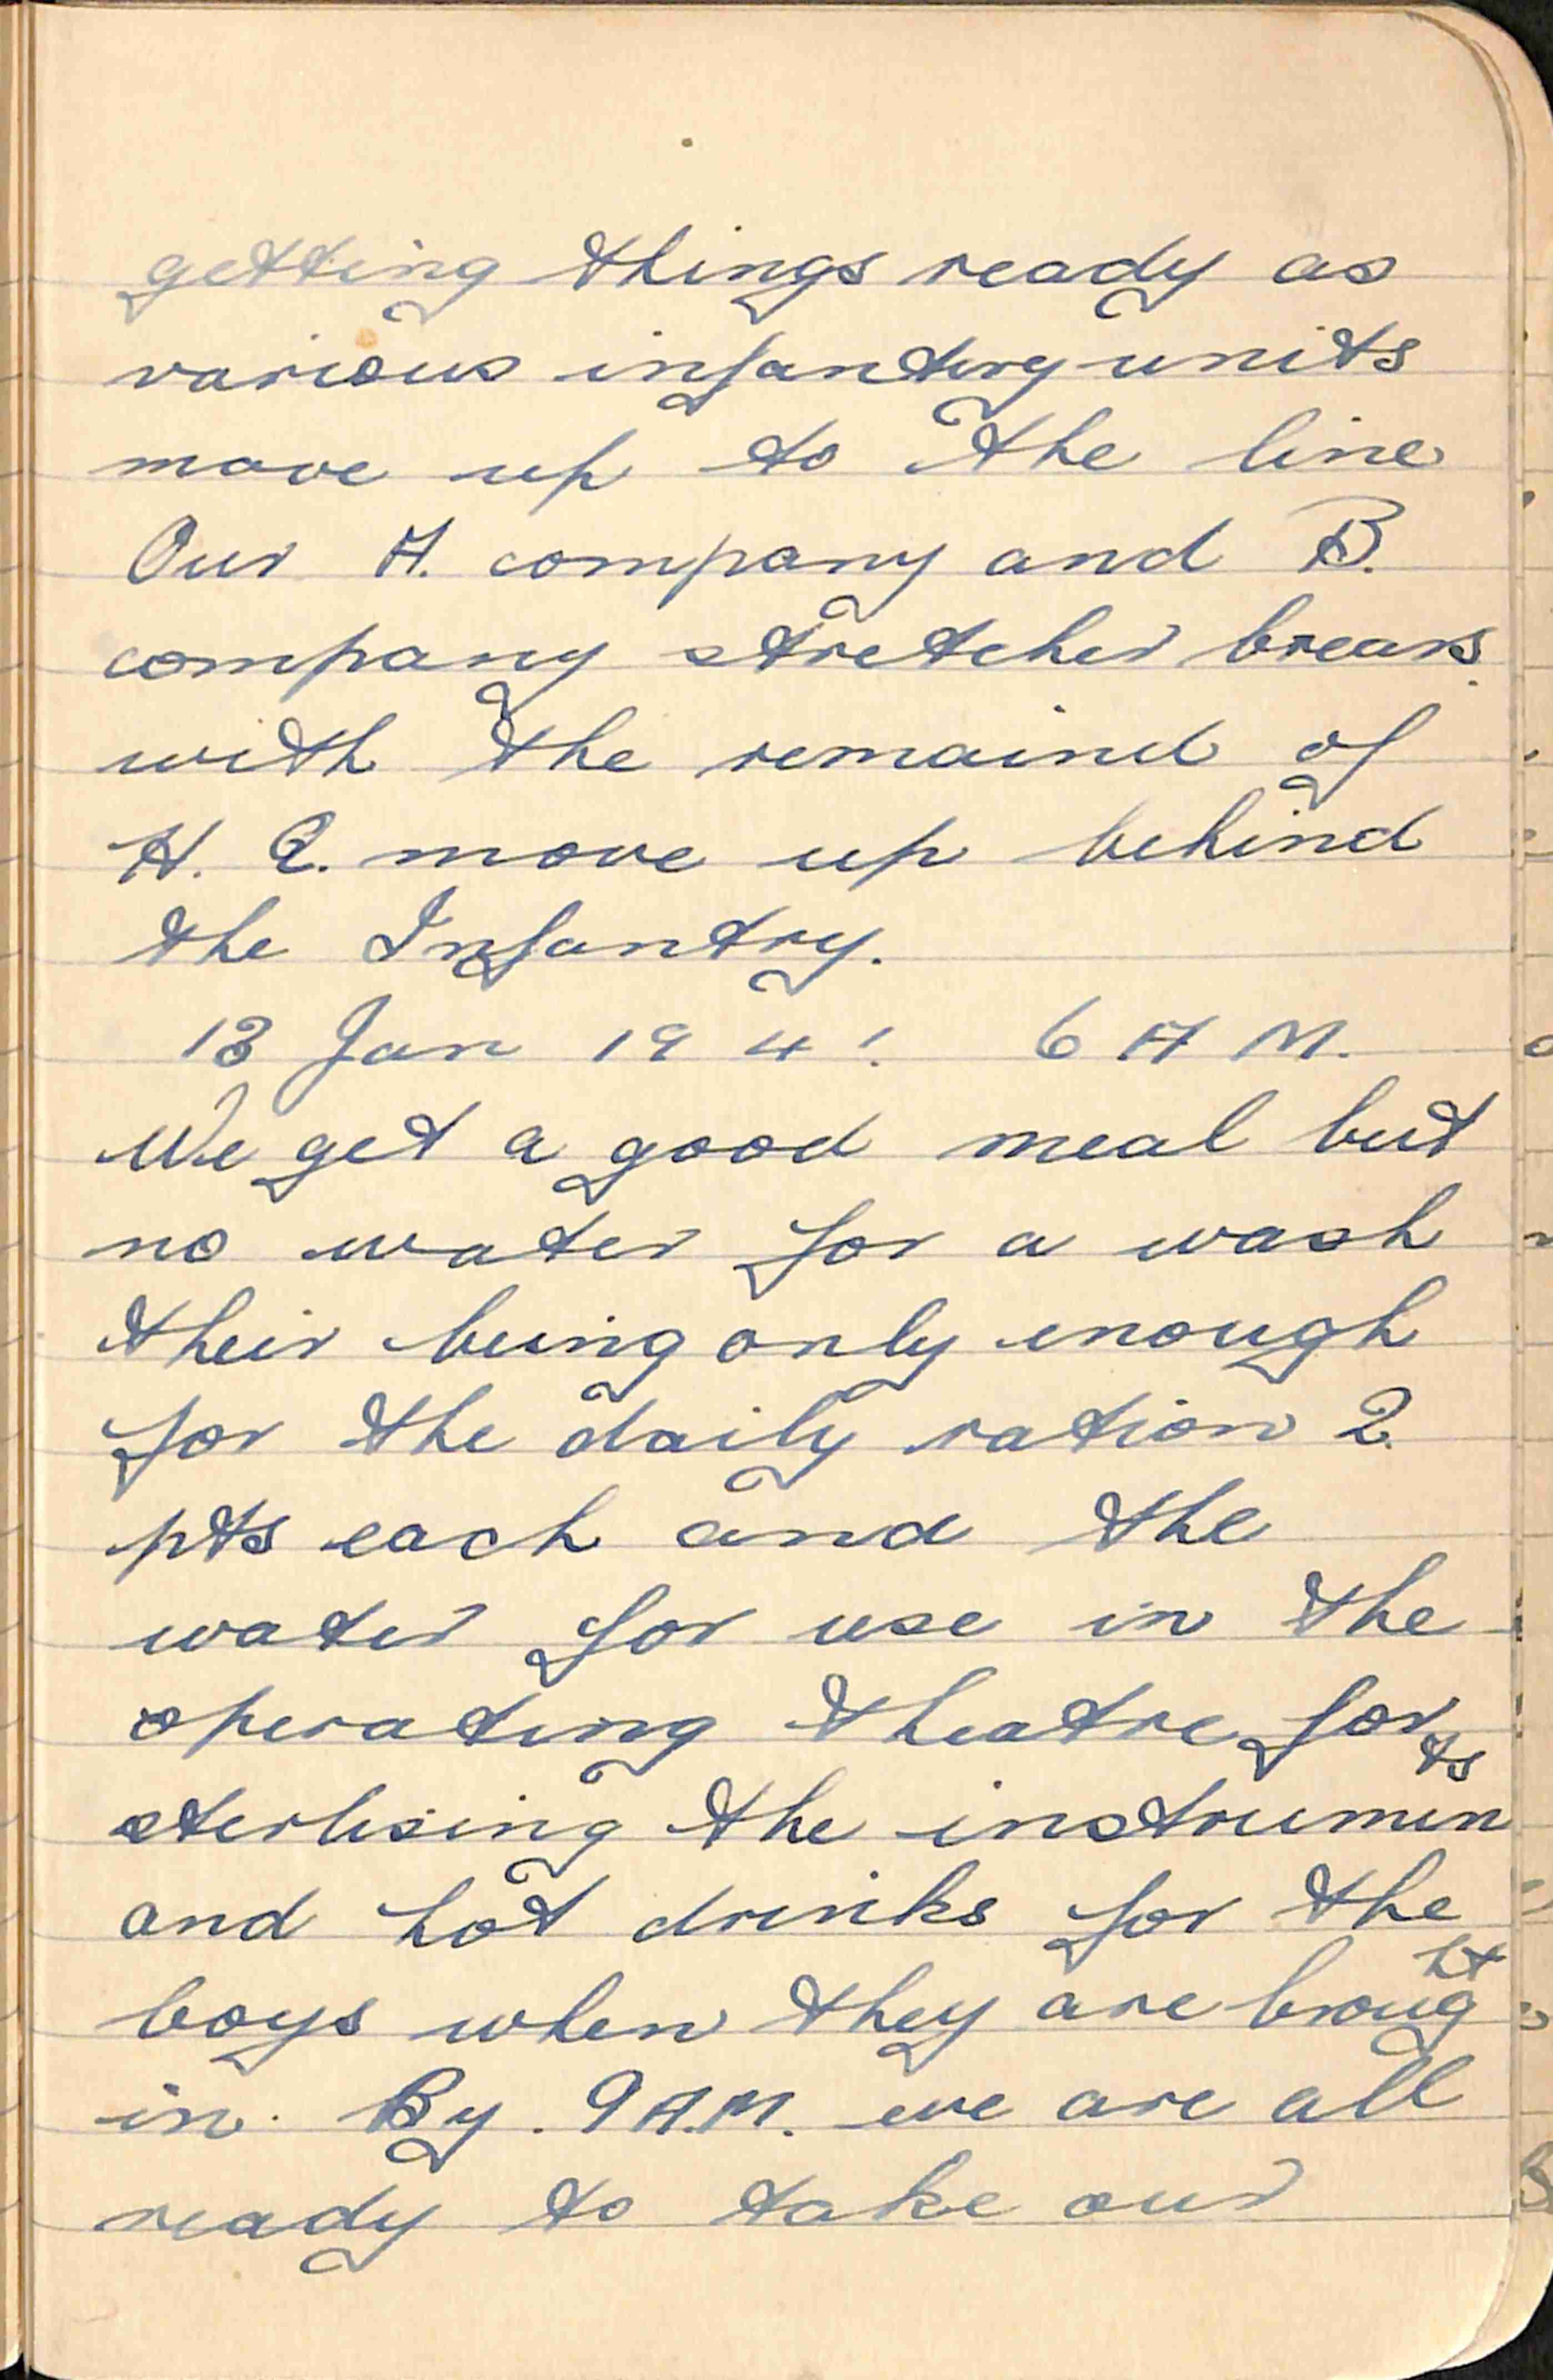 getting things ready as
various infantry units
move up to the line
Our A. company and B.
company stretcher brears.
with the remaind of
H. Q. move up behind
the Infantry.
13 Jan 1941. 6 AM.
We get a good meal but
no water for a wash
their being only enough
for the daily ration 2
pts each and the
water for use in the
operating theatre for
sterlising the instruments
and hot drinks for the
boys when they are brought
in. By. 9 A.M. we are all
ready to take our